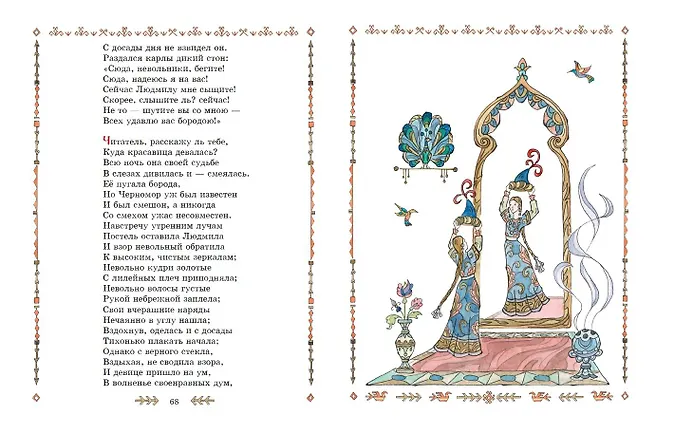 С досады дня не взвидел он.
Раздался карлы дикий стон:
«Сюда, невольники, бегите!
Сюда, надеюсь я на вас!
Сейчас Людмилу мне сыщите!
Скорее, слышите ль? сейчас!
Не то — шутите вы со мною —
Всех удавлю вас бородою!»
Читатель, расскажу ль тебе,
Куда красавица девалась?
Всю ночь она своей судьбе
В слезах дивилась и — смеялась.
Её пугала борода,
Но Черномор уж был известен
И был смешон, а никогда
Со смехом ужас несовместен.
Навстречу утренним лучам
Постель оставила Людмила
И взор невольный обратила
К высоким, чистым зеркалам;
Невольно кудри золотые
С лилейных плеч приподняла;
Невольно волосы густые
Рукой небрежной заплела;
Свои вчерашние наряды
Нечаянно в углу нашла;
Вздохнув, оделась и с досады
Тихонько плакать начала;
Однако с верного стекла,
Вздыхая, не сводила взора,
И девице пришло на ум,
В волненье своенравных дум,
68